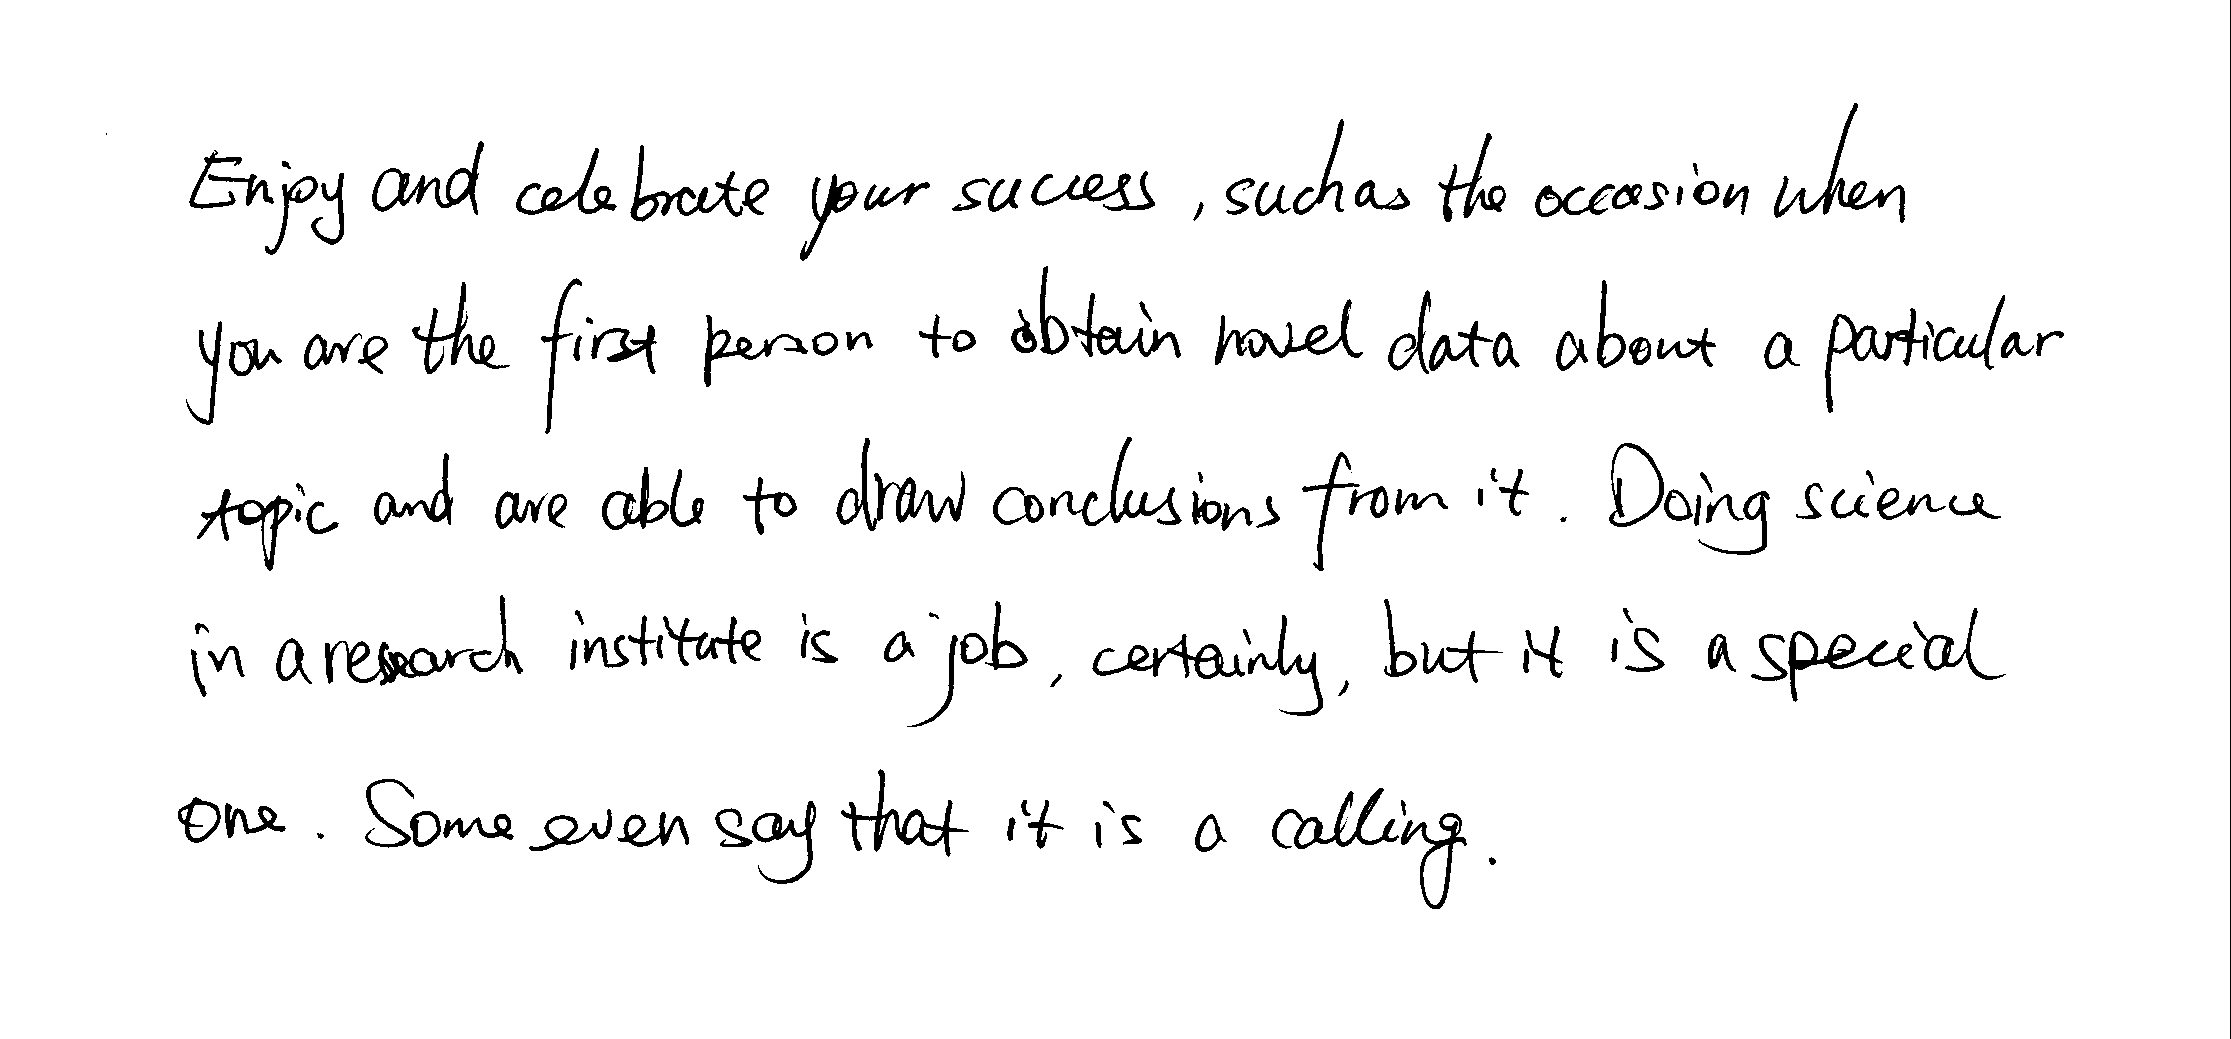 Enjoy and celebrate your success, such as the occasion when
you are the first person to obtain novel data about a particular
topic and are able to draw conclusions from it. Doing science
in a research institute is a job, certainly, but it is a special
one. Some even say that it is a calling.